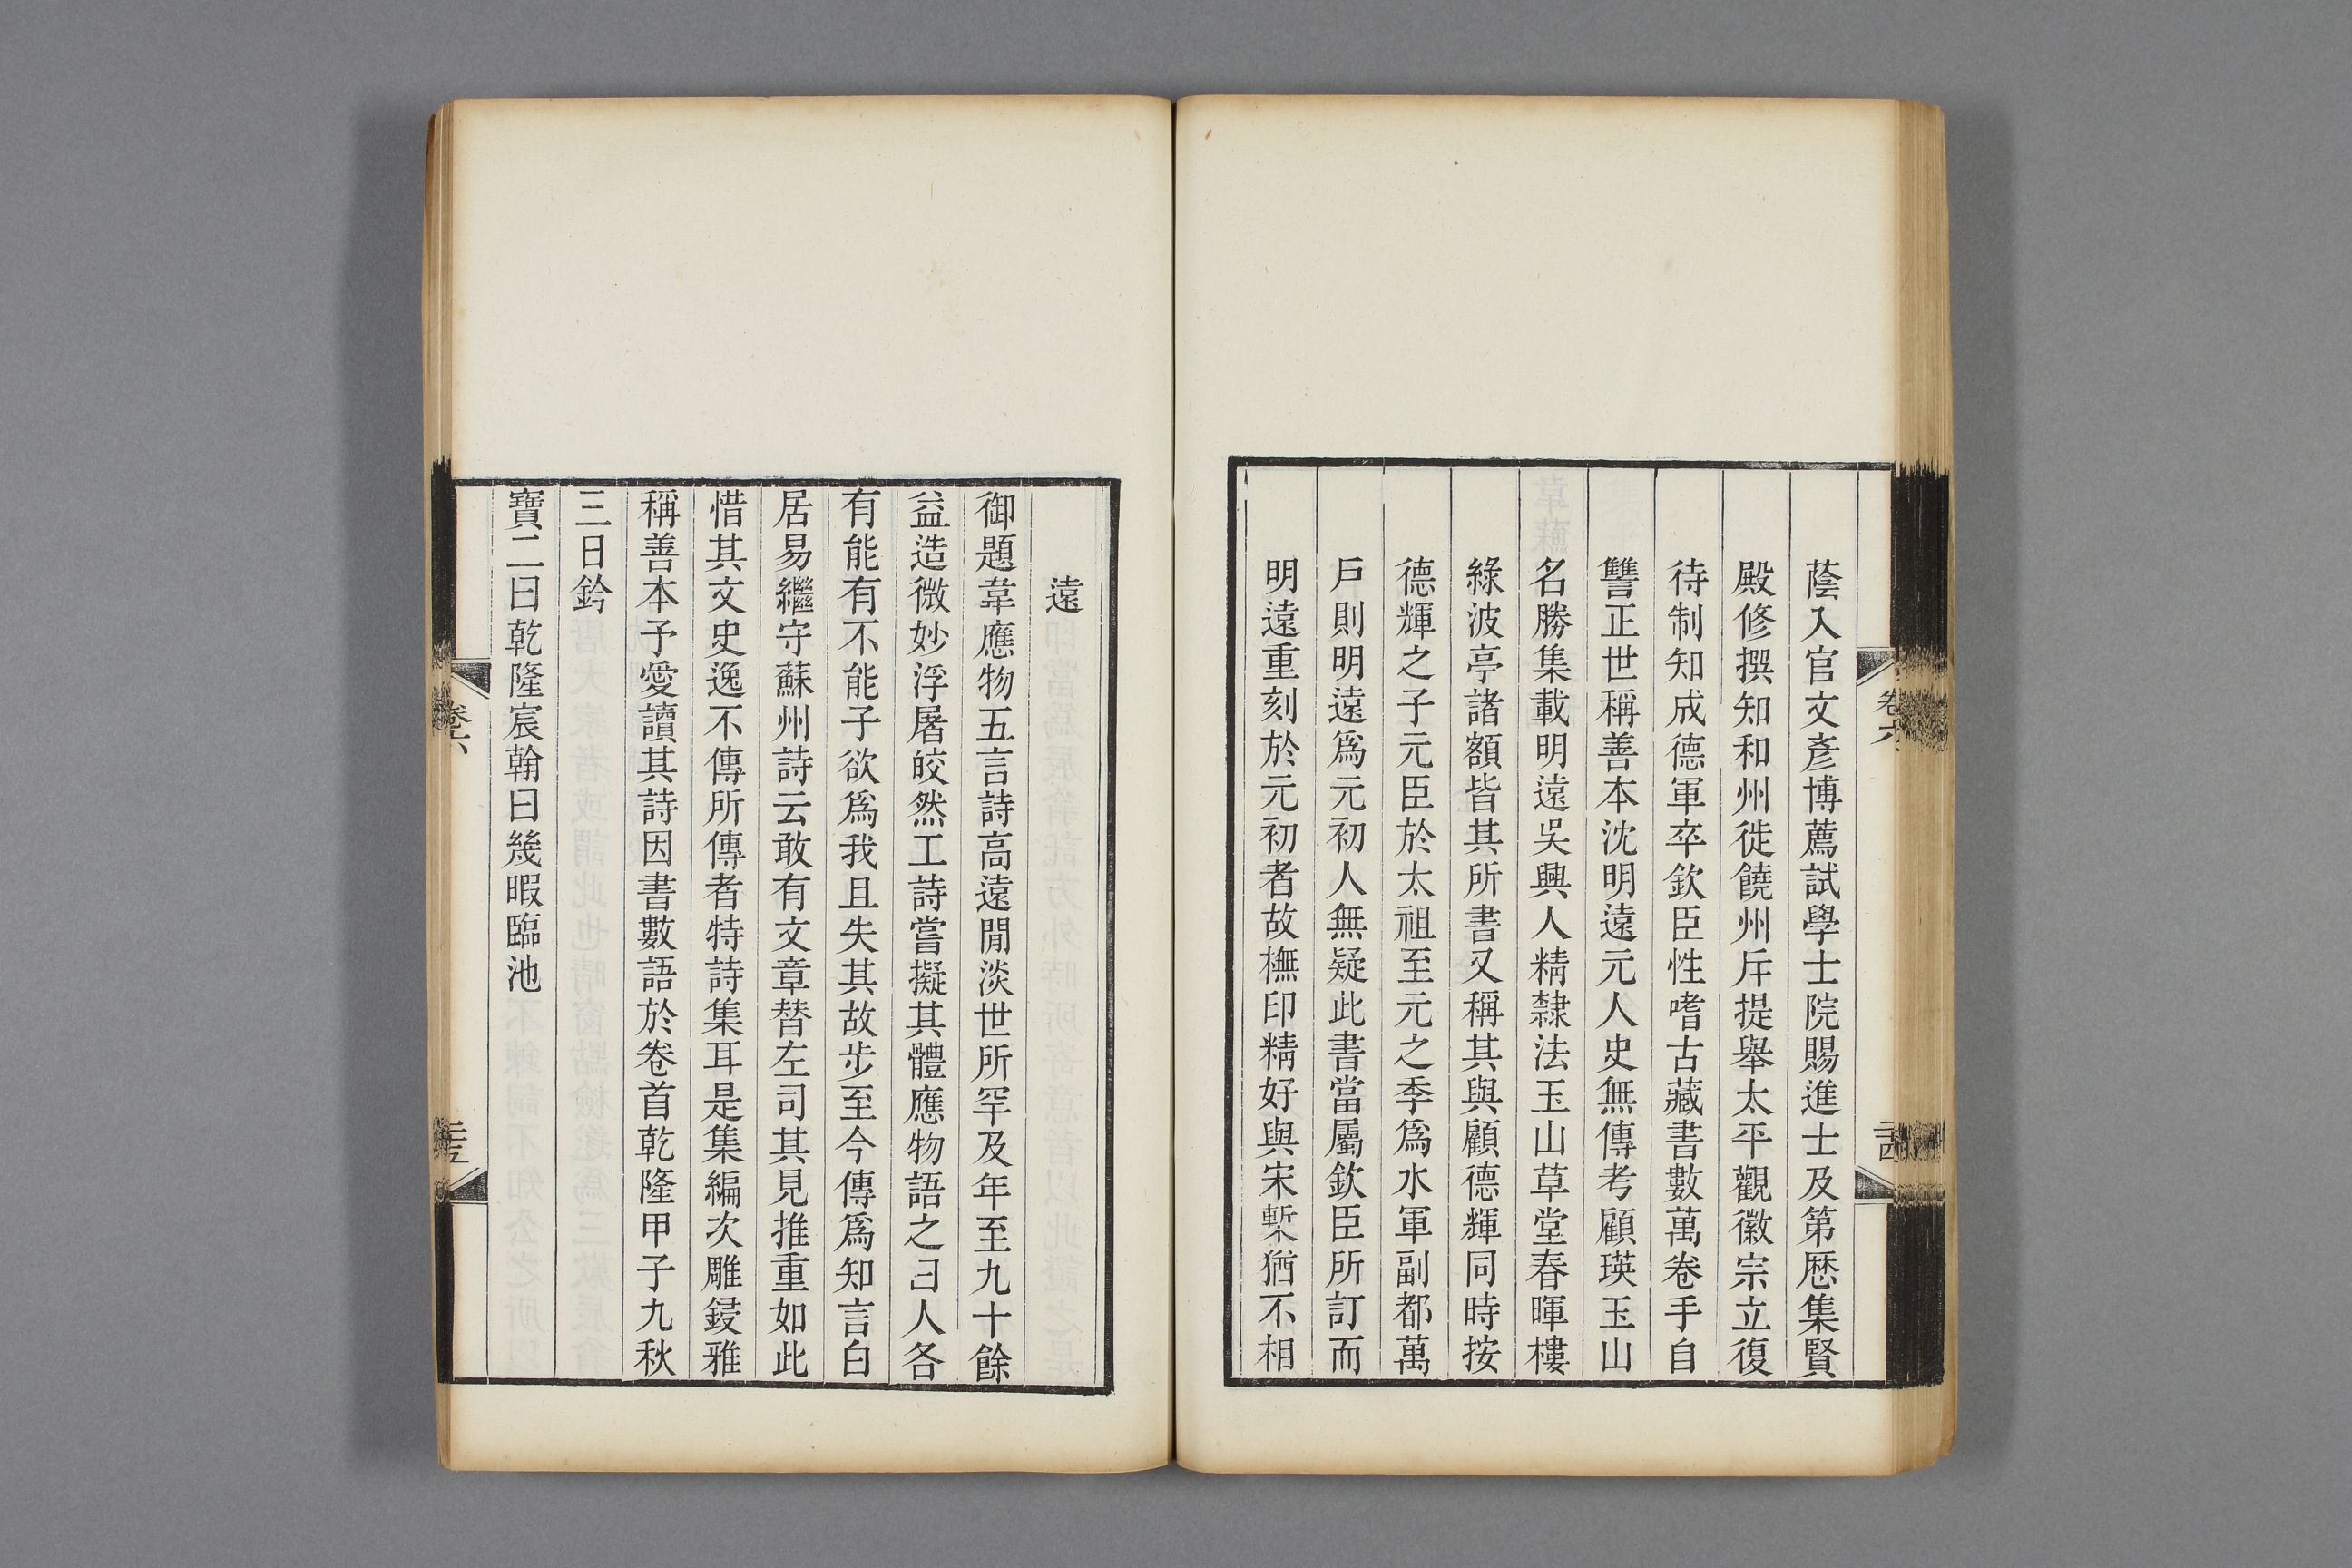 卷六
二十四
蔭入官文彥博薦試學士院賜進士及第歴集賢
殿修撰知和州徙饒州斥提舉太平觀徽宗立復
待制知成德軍卒欽臣性嗜古藏書數萬卷手自
讐正世稱善本沈明遠元人史無傳考顧瑛玉山
名勝集載明遠吳興人精隸法玉山草堂春暉樓
綠波亭諸額皆其所書又稱其與顧德輝同時按
德輝之子元臣於太祖至元之季爲水軍副都萬
戶則明遠爲元初人無疑此書當屬欽臣所訂而
明遠重刻於元初者故橅印精好與宋槧猶不相
遠
御題韋應物五言詩高遠閒淡世所罕及年至九十餘
益造微妙浮屠皎然工詩嘗擬其體應物語之曰人各
有能有不能子欲爲我且失其故步至今傳爲知言白
居易繼守蘇州詩云敢有文章替左司其見推重如此
惜其文史逸不傳所傳者特詩集耳是集編次雕鋟雅
稱善本予愛讀其詩因書數語於卷首乾隆甲子九秋
三日鈐
寶二曰乾隆宸翰曰幾暇臨池
卷六
二十五